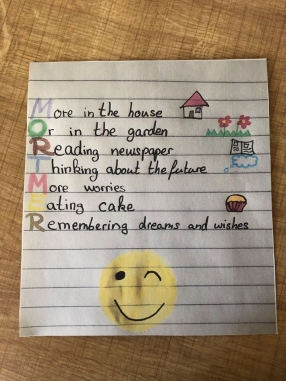 More in the house
Or in the garden
Reading newspaper
Thinking about the future
More worries
Eating cake
Remembering dreams and wishes